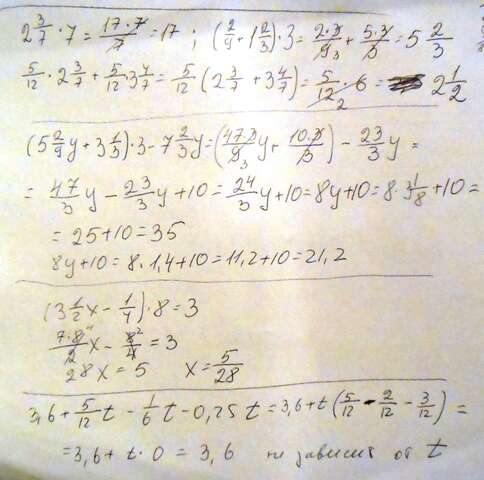 2 3/7 · 7 = 17·7/7 = 17 ; (2/9 + 1 2/3)·3 = 2·3/9 3 + 5·3/3 = 5 2/3
5/12 · 2 3/7 + 5/12 · 3 4/7 = 5/12 (2 3/7 + 3 4/7) = 5/12 2 · 6 = 2 1/2
(5 2/9 y + 3 1/3)·3 - 7 2/3 y = (47·3/9 3 y + 10·3/3) - 23/3 y =
= 47/3 y - 23/3 y + 10 = 24/3 y + 10 = 8y + 10 = 8 · 3 1/8 + 10 =
= 25 + 10 = 35
8y + 10 = 8 · 1,4 + 10 = 11,2 + 10 = 21,2
(3 1/2 x - 1/4) · 8 = 3
7·8 4/2 x - 8 2/4 = 3
28x = 5 x = 5/28
3,6 + 5/12 t - 1/6 t - 0,25 t = 3,6 + t (5/12 - 2/12 - 3/12) =
= 3,6 + t · 0 = 3,6 не зависит от t